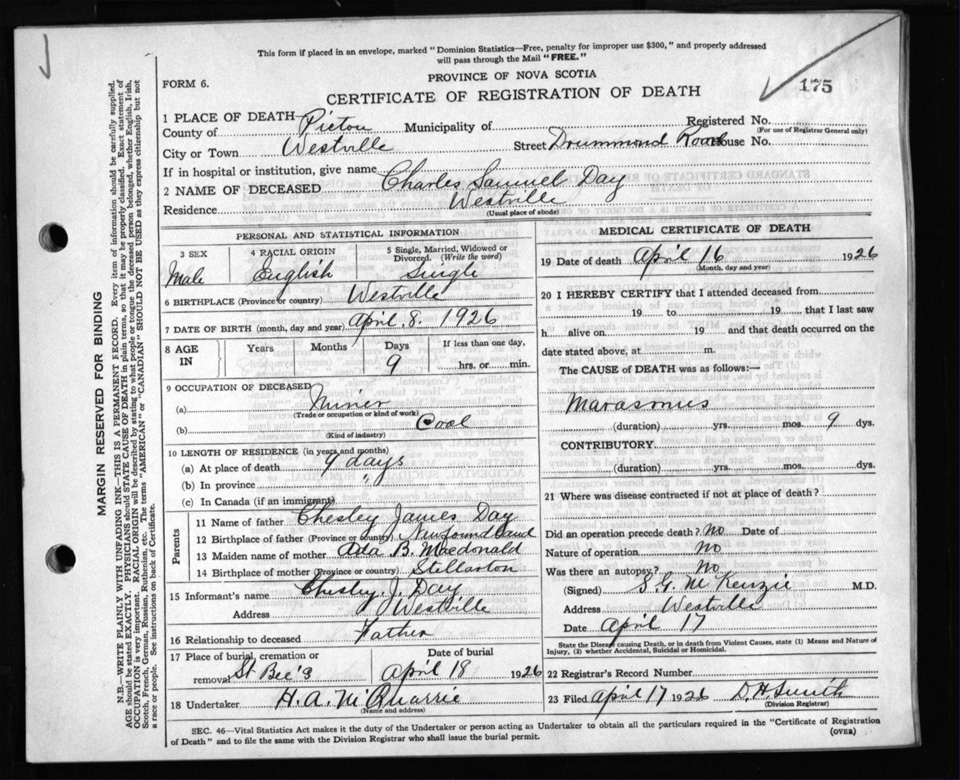 This form if placed in an envelope, marked "Dominion Statistics—Free, penalty for improper use $300," and properly addressed
will pass through the Mail "FREE."
PROVINCE OF NOVA SCOTIA
FORM 6.
CERTIFICATE OF REGISTRATION OF DEATH
175
1 PLACE OF DEATH
County of Pictou Municipality of Registered No.
(For use of Registrar General only)
City or Town Westville Street Drummond Road House No.
If in hospital or institution, give name
2 NAME OF DECEASED Charles Samuel Day
Residence Westville
(Usual place of abode)
PERSONAL AND STATISTICAL INFORMATION
3 SEX 4 RACIAL ORIGIN 5 Single, Married, Widowed or Divorced. (Write the word)
Male English Single
6 BIRTHPLACE (Province or country) Westville
7 DATE OF BIRTH (month, day and year) April 8. 1926
8 AGE IN Years Months Days If less than one day,
9 hrs. or min.
9 OCCUPATION OF DECEASED
(a) Miner
(Trade or occupation or kind of work)
(b) Coal
(Kind of industry)
10 LENGTH OF RESIDENCE (in years and months)
(a) At place of death 9 days
(b) In province "
(c) In Canada (if an immigrant)
Parents
11 Name of father Chesley James Day
12 Birthplace of father (Province or country) Newfoundland
13 Maiden name of mother Ada B. Macdonald
14 Birthplace of mother (Province or country) Stellarton
15 Informant's name Chesley J. Day
Address Westville
16 Relationship to deceased Father
17 Place of burial, cremation or removal St Bee's Date of burial April 18 1926
18 Undertaker H. A. McQuarrie
(Name and address)
MEDICAL CERTIFICATE OF DEATH
19 Date of death April 16 1926
(Month, day and year)
20 I HEREBY CERTIFY that I attended deceased from
19 to 19 , that I last saw
h alive on 19 and that death occurred on the
date stated above, at m.
The CAUSE of DEATH was as follows:—
Marasmus
(duration) yrs. mos. 9 dys.
CONTRIBUTORY
(duration) yrs. mos. dys.
21 Where was disease contracted if not at place of death?
Did an operation precede death? No Date of
Nature of operation No
Was there an autopsy? No
(Signed) S. G. McKenzie M.D.
Address Westville
Date April 17
State the Disease causing Death, or in death from Violent Causes, state (1) Means and Nature of
Injury, (2) whether Accidental, Suicidal or Homicidal.
22 Registrar's Record Number
23 Filed April 17 1926 D. H. Smith
(Division Registrar)
SEC. 46—Vital Statistics Act makes it the duty of the Undertaker or person acting as Undertaker to obtain all the particulars required in the "Certificate of Registration
of Death" and to file the same with the Division Registrar who shall issue the burial permit.
(OVER)
MARGIN RESERVED FOR BINDING
N.B.—WRITE PLAINLY WITH UNFADING INK—THIS IS A PERMANENT RECORD. Every item of information should be carefully supplied.
AGE should be stated EXACTLY. PHYSICIANS should STATE CAUSE OF DEATH in plain terms, so that it may be properly classified. Exact statement of
OCCUPATION is very important. RACIAL ORIGIN will be described by stating to what people or tongue the deceased person belonged, whether English, Irish,
Scotch, French, German, Russian, Ruthenian, etc. The terms "AMERICAN" or "CANADIAN" SHOULD NOT BE USED as they express citizenship but not
a race or people. See instructions on back of Certificate.